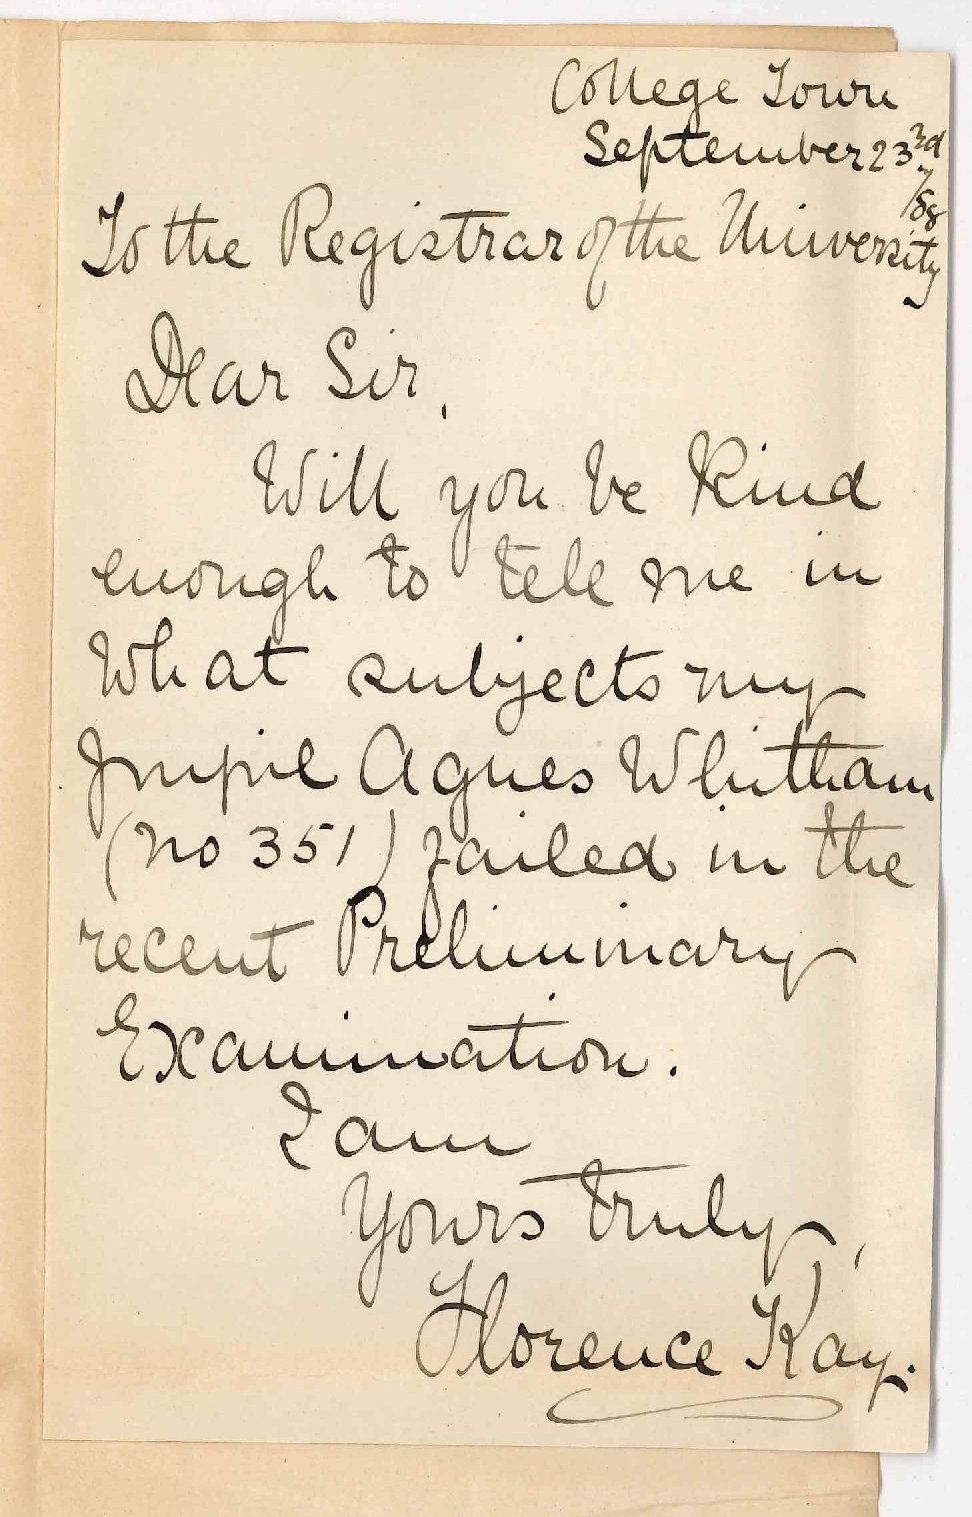 College Town
September 23rd
/88
To the Registrar of the University
Dear Sir,
Will you be kind
enough to tell me in
what subjects my
pupil Agnes Whitham
(no 351) failed in the
recent Preliminary
Examination.
I am
Yours truly,
Florence Kay.